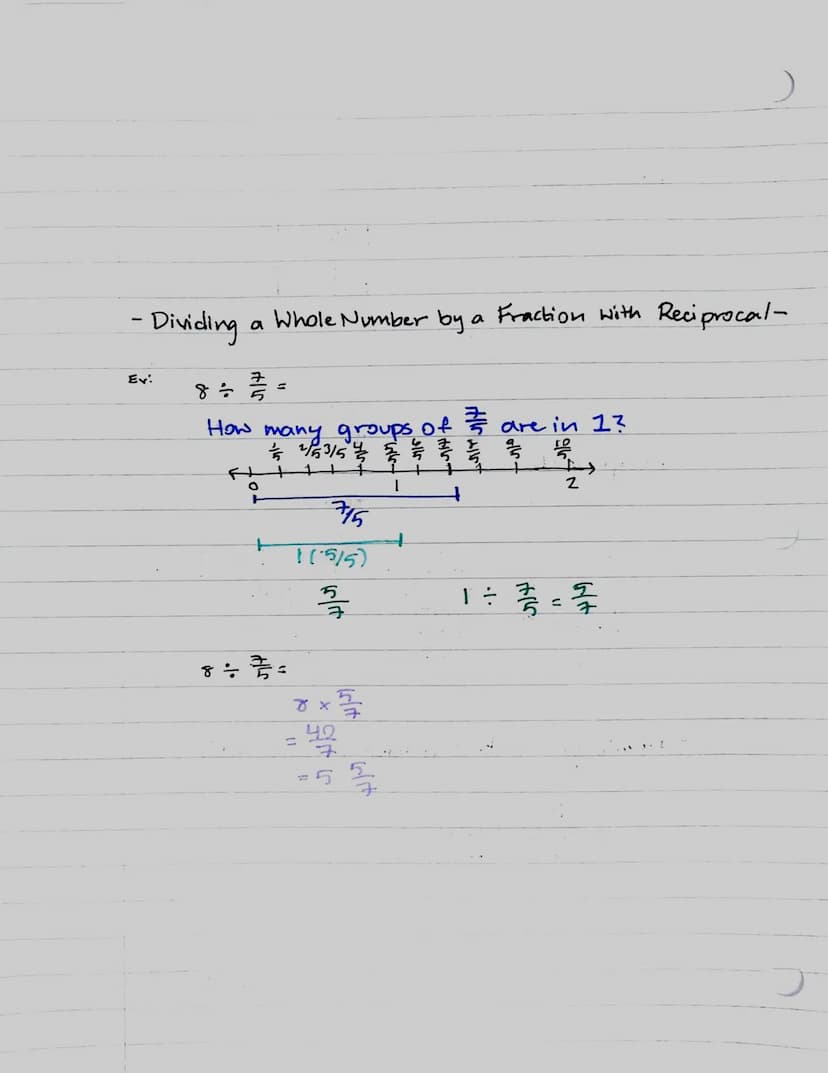 - Dividing a Whole Number by a Fraction with Reciprocal -
Ex:
8 ÷ 7/5 =
How many groups of 7/5 are in 1?
1/5 2/5 3/5 4/5 5/5 6/5 7/5 8/5 9/5 10/5
0 1 2
7/5
1 (5/5)
5/7 1 ÷ 7/5 = 5/7
8 ÷ 7/5 =
8 × 5/7
= 40/7
= 5 5/7